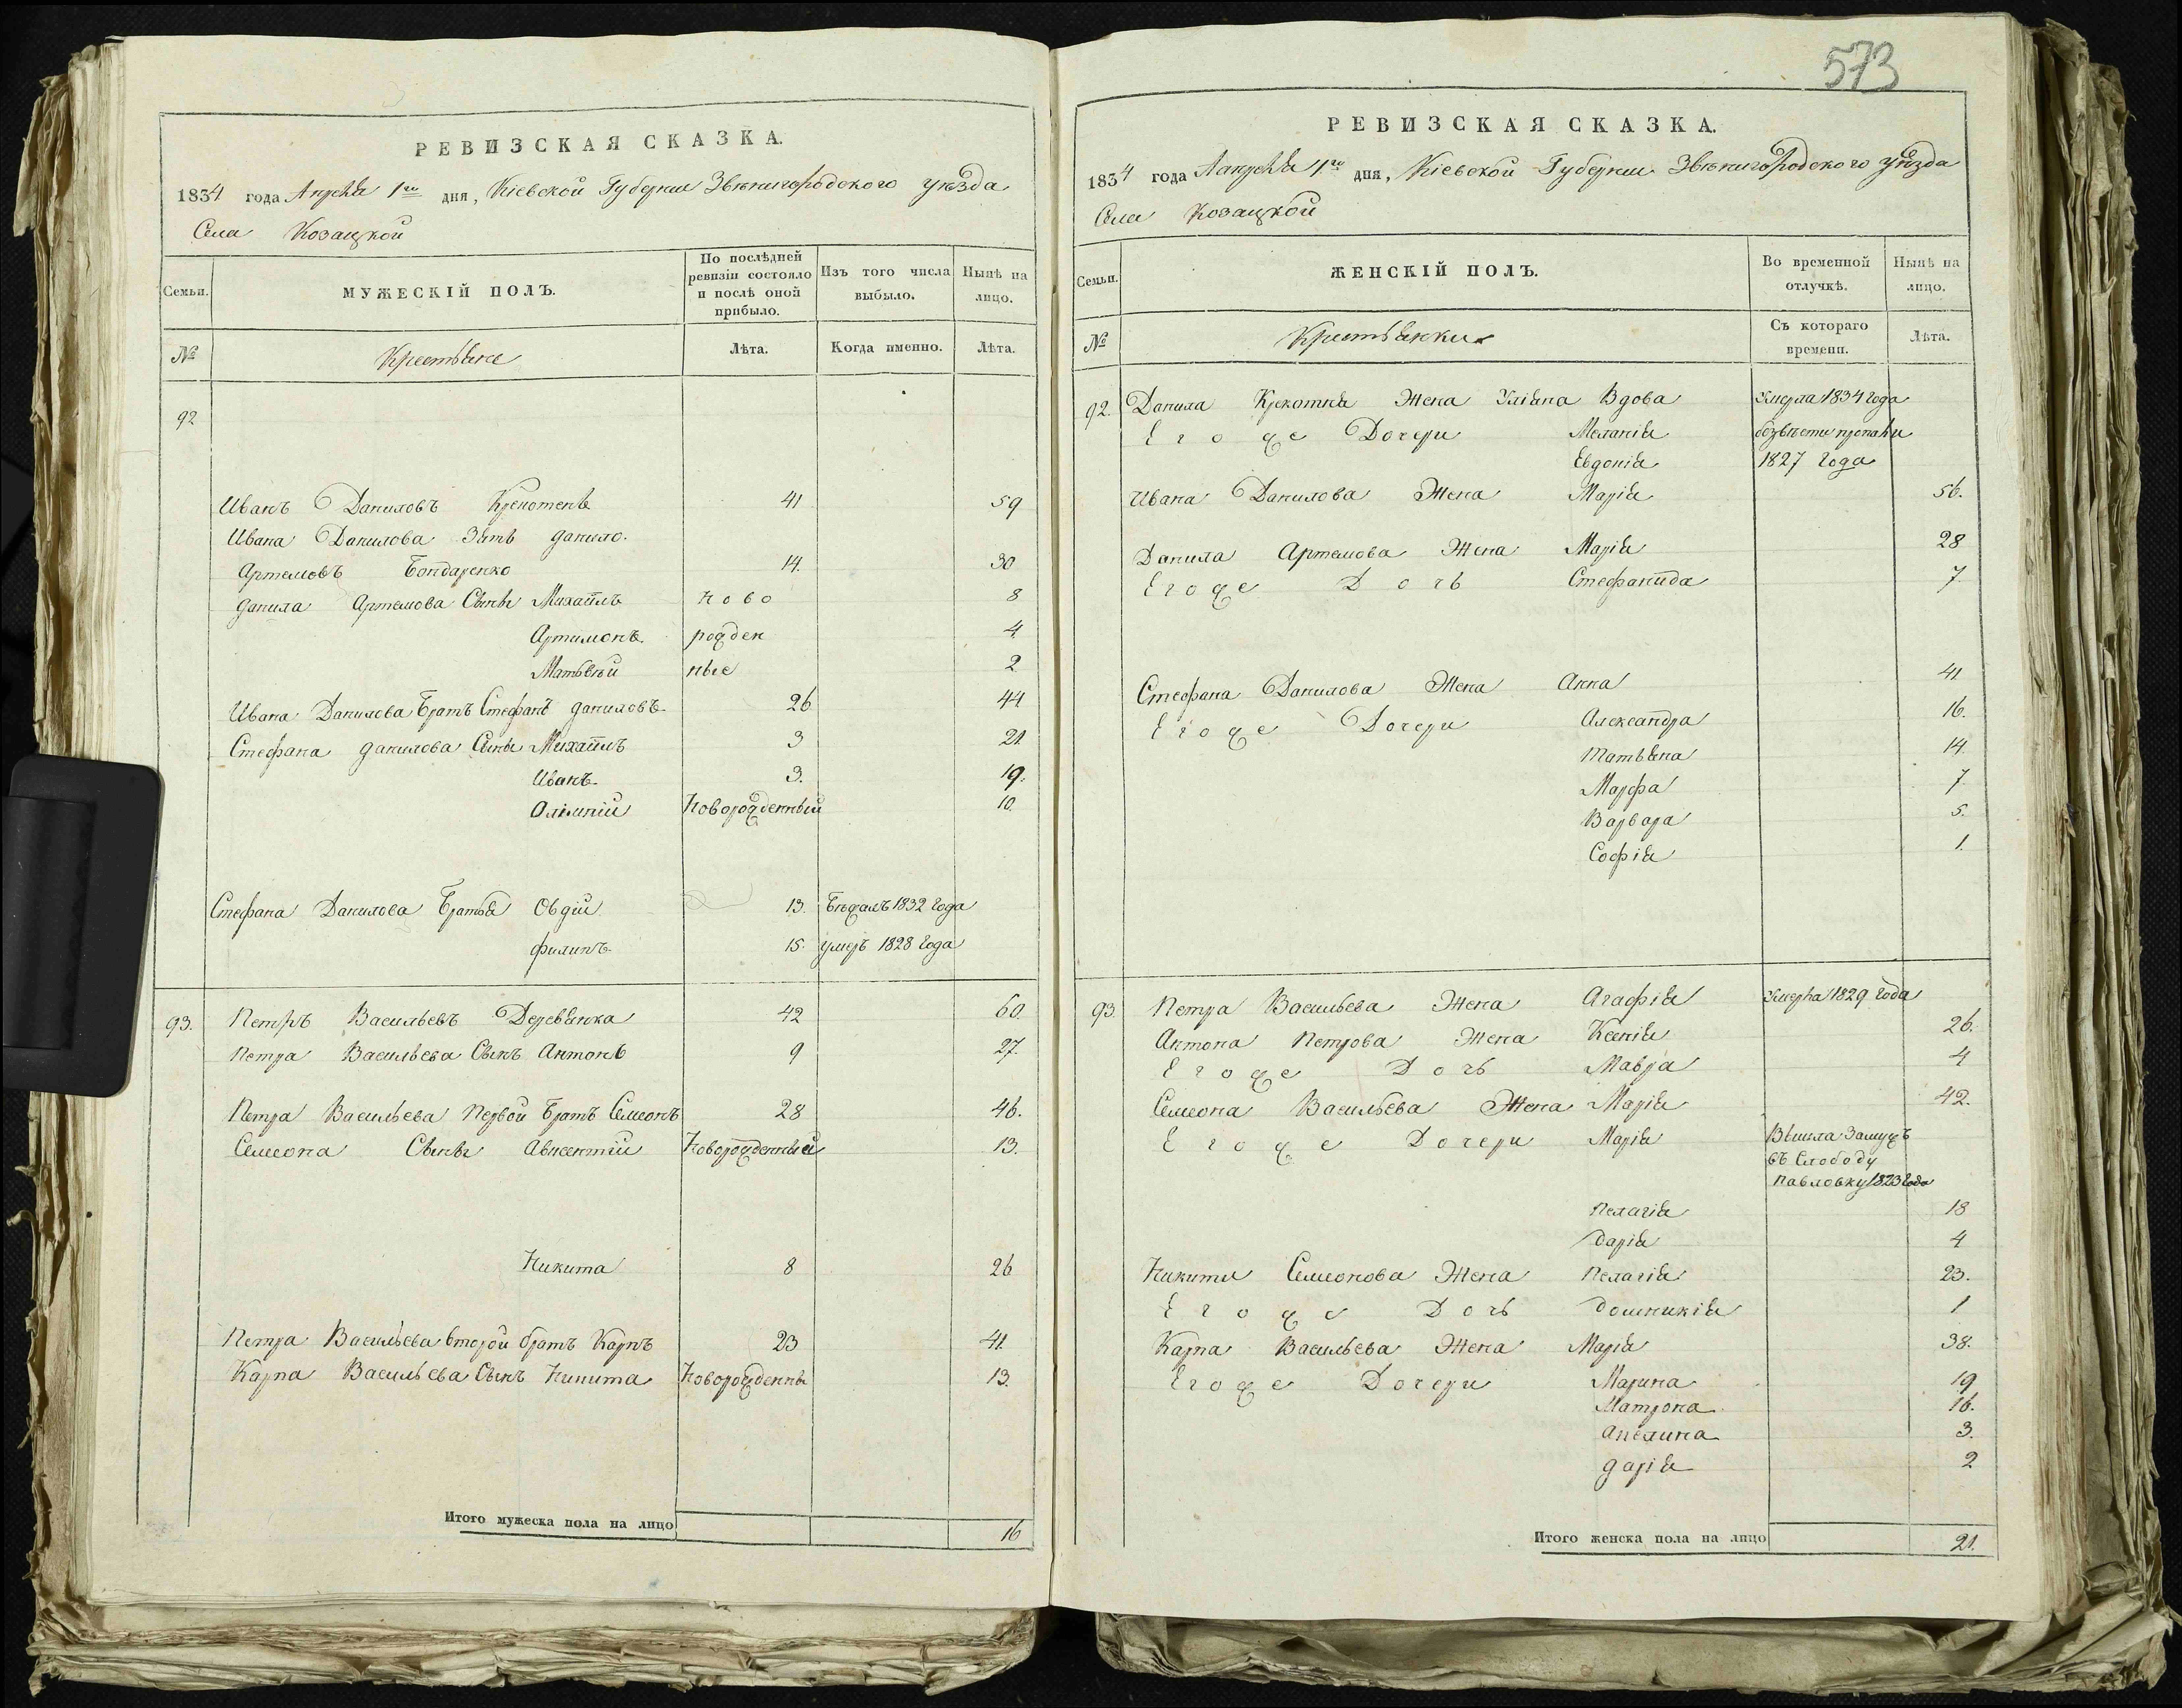 РЕВИЗСКАЯ СКАЗКА.
1834 года Апреля 1го дня, Кіевской Губерніи Звѣнигородского уѣзда
Села Козацкой
Семьи.
МУЖЕСКІЙ ПОЛЪ.
По послѣдней ревизіи состояло и послѣ оной прибыло.
Изъ того числа выбыло.
Нынѣ на лицо.
№
Крестьяне
Лѣта.
Когда именно.
Лѣта.
92
Иванъ Даниловъ Крекотень 41 59
Ивана Данилова Зять Данило
Артемовъ Бондаренко 14. 30
Данила Артемова Сыны Михаилъ ново 8
Артимонъ рожден 4.
Матвѣй ные 2
Ивана Данилова Братъ Стефанъ Даниловъ 26 44
Стефана Данилова Сыны Михаилъ 3 21
Иванъ 3. 19.
Олімпій Новорожденный 10.
Стефана Данилова Братья Овдій 13. Бѣжалъ 1832 года
Филипъ 15. умеръ 1828 года
93. Петръ Васильевъ Деревянка 42 60.
Петра Васильева Сынъ Антонъ 9 27.
Петра Васильева Первой Братъ Семеонъ 28 46.
Семеона Сыны Авксентій Новорожденный 13.
Никита 8 26
Петра Васильева второй братъ Карпъ 23 41.
Карпа Васильева Сынъ Никита Новорожденны 13.
Итого мужеска пола на лицо 16
573
РЕВИЗСКАЯ СКАЗКА.
1834 года Апреля 1го дня, Кіевской Губерніи Звѣнигородского уѣзда
Села Козацкой
Семьи.
ЖЕНСКІЙ ПОЛЪ.
Во временной отлучкѣ.
Нынѣ на лицо.
№
Крестьянки
Съ котораго времени.
Лѣта.
92. Данила Крекотня Жена Уліана Вдова Умерла 1834 года
Его же Дочери Меланія безвѣсти пропали
Евдокія 1827 года
Ивана Данилова Жена Марія 56.
Данила Артемова Жена Марія 28
Его же Дочь Стефанида 7.
Стефана Данилова Жена Анна 41
Его же Дочери Александра 16.
Татьяна 14.
Марфа 7.
Варвара 5.
Софія 1.
93. Петра Васильева Жена Агафія Умерла 1829 года
Антона Петрова Жена Ксенія 26.
Его же Дочь Мавра 4
Семеона Васильева Жена Марія 42.
Его же Дочери Марія Вышла Замужъ
въ Слободу
Павловку 1823 года
Пелагія 18
Дарія 4
Никиты Семеонова Жена Пелагія 23.
Его же Дочь Домникія 1
Карпа Васильева Жена Марія 38.
Его же Дочери Марина 19
Матрона 16.
Ангелина 3.
Дарія 2
Итого женска пола на лицо 21.